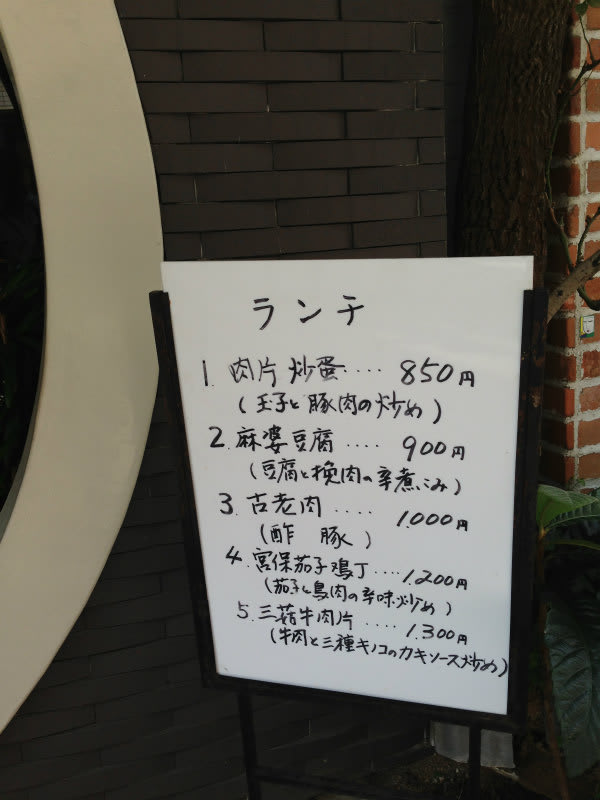 ランチ
1. 肉片炒蛋.... 850円
(王子と豚肉の炒め)
2. 麻婆豆腐.... 900円
(豆腐と挽肉の辛煮こみ)
3. 古老肉.... 1.000円
(酢豚)
4. 宮保茄子鶏丁.... 1.200円
(茄子と鳥肉の辛味炒め)
5. 三菇牛肉片.... 1.300円
(牛肉と三種キノコのカキソース炒め)